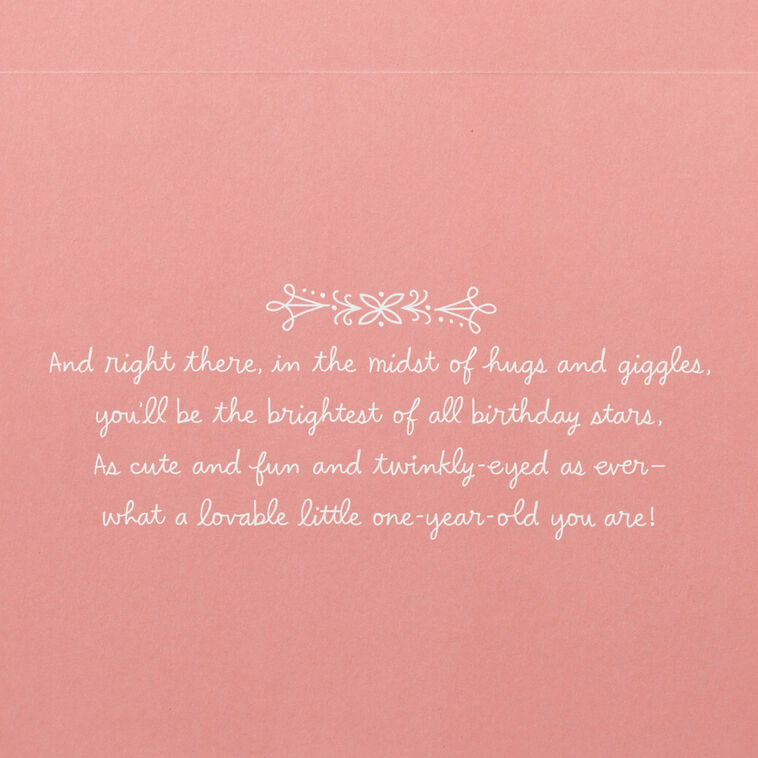 And right there, in the midst of hugs and giggles,
you'll be the brightest of all birthday stars,
As cute and fun and twinkly-eyed as ever—
what a lovable little one-year-old you are!